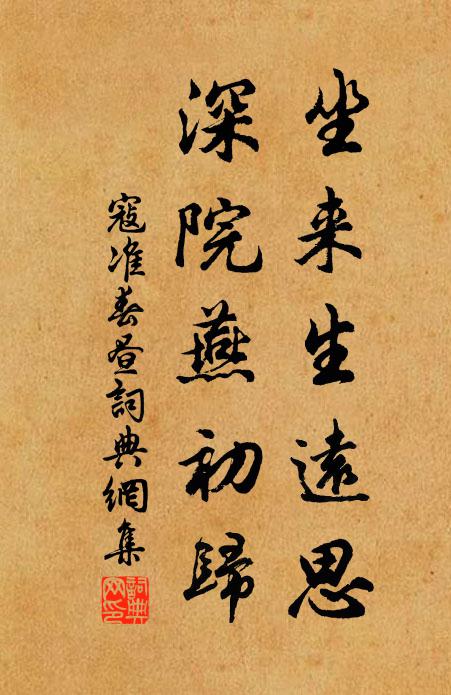 坐来生遠思
深院燕初歸
寇准春昼詞典網集
詞典网印